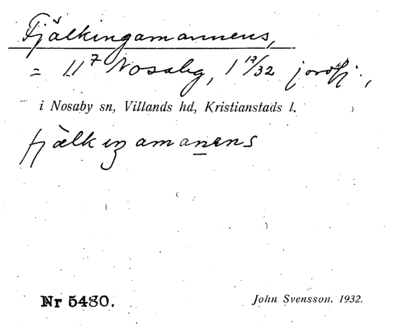 Fjälkingamannens,
= 11⁷ Nosaby, 1 12/32 jordfj.,
i Nosaby sn, Villands hd, Kristianstads l.
fjälkingamanens
Nr 5480.
John Svensson. 1932.